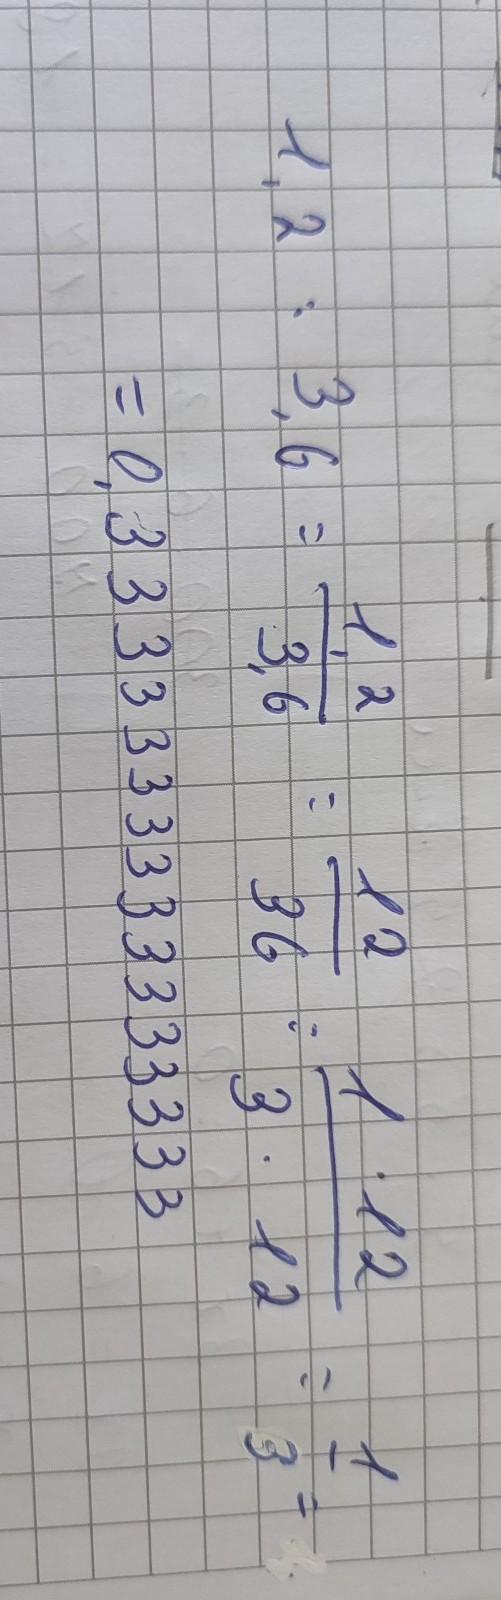 1,2 : 3,6 = 1,2/3,6 = 12/36 = 1 · 12/3 · 12 = 1/3 =
= 0,333333333333333